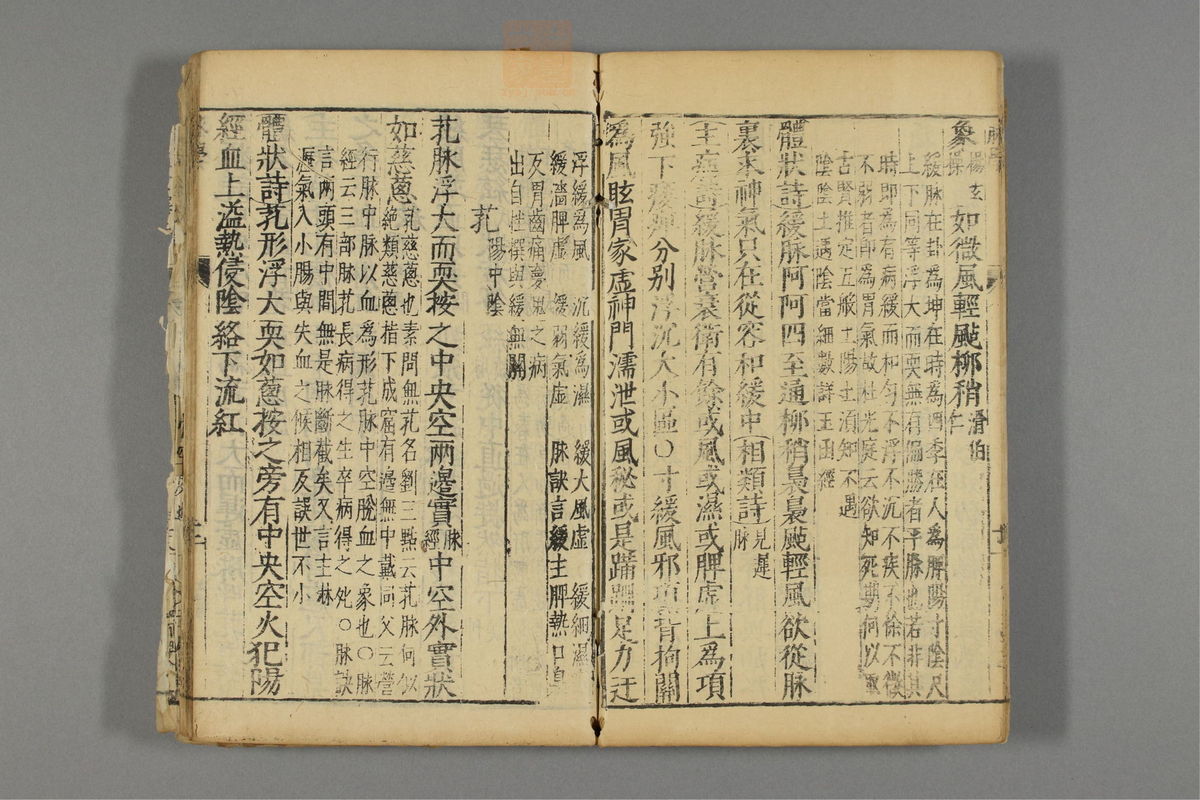 象 楊玄操 如微風輕颭柳稍 滑伯仁
緩脉在卦為坤在時為四季在人為脾陽寸陰尺
上下同等浮大而耎無有偏勝者平脉也若非其
時即為有病緩而和勻不浮不沉不疾不徐不微
不弱者即為胃氣故杜光庭云欲知死期何以取
古賢推定五般土陽土須知不遇
陰陰土遇陰當細數詳玉函經
體狀詩緩脉阿阿四至通柳稍裊裊颭輕風欲從脉
裏求神氣只在從容和緩中 相類詩 見遲脉
主病詩緩脉營衰衛有餘或風或濕或脾虛上為項
強下痿痺分別浮沉大小區○寸緩風邪項背拘關
為風眩胃家虛神門濡泄或風秘或是蹣跚足力迂
浮緩為風 沉緩為濕 緩大風虛 緩細濕
緩濇脾虛 緩弱氣虛 脉訣言緩主脾熱口臭
反胃齒痛夢鬼之病
出自杜撰與緩無關
芤 陽中陰
芤脉浮大而耎按之中央空兩邊實 脉經 中空外實狀
如慈蔥 芤慈蔥也素問無芤名劉三點云芤脉何似
絶類慈蔥指下成窟有邊無中戴同父云營
行脉中脉以血為形芤脉中空脫血之象也○脉
經云三部脉芤長病得之生卒病得之死○脉訣
言兩頭有中間無是脉斷截矣又言主淋
瀝氣入小腸與失血之候相反誤世不小
體狀詩芤形浮大耎如蔥按之旁有中央空火犯陽
經血上溢熱侵陰絡下流紅